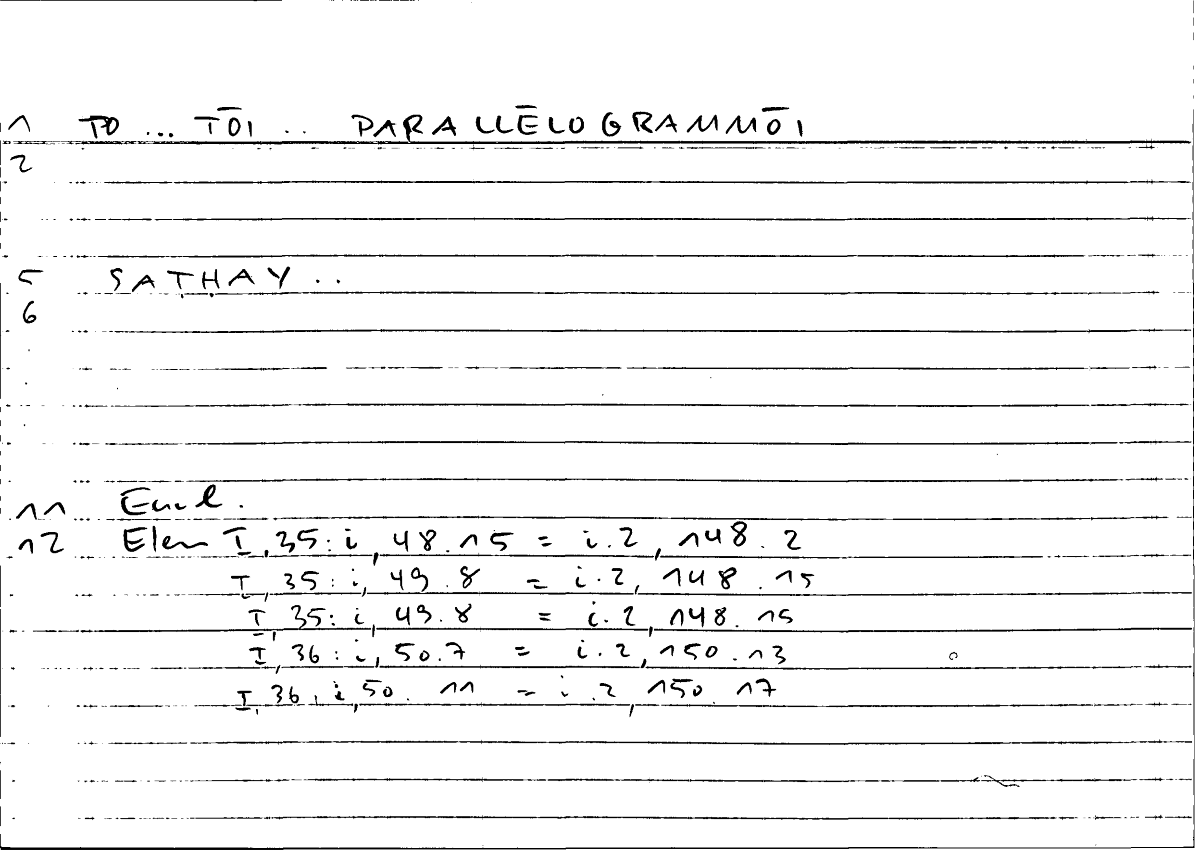 1 TO ... TŌI .. PARALLĒLOGRAMMŌI
2
5 SAṬḤAY ..
6
11 Eucl.
12 Elem I,35: i, 48.15 = i.2, 148.2
I,35: i, 49.8 = i.2, 148.15
I,35: i, 49.8 = i.2, 148.15
I,36: i, 50.7 = i.2, 150.13
I,36. i, 50.11 = i.2, 150.17